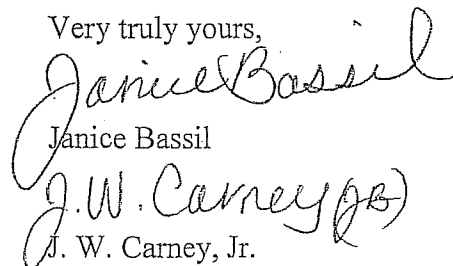 Very truly yours,
Janice Bassil
Janice Bassil
J.W. Carney (JB)
J. W. Carney, Jr.